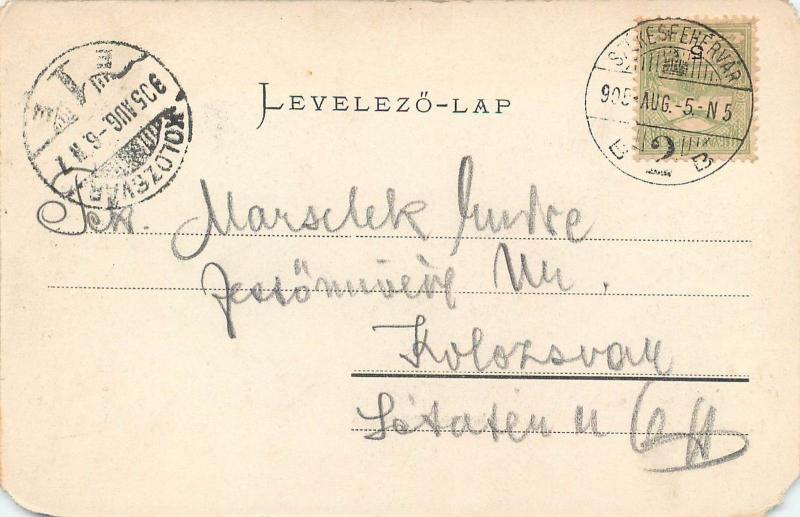 LEVELEZŐ-LAP
SZÉKESFEHÉRVÁR
905 AUG. -5. -N 5
2
KOLOZSVÁR
905 AUG -6. N 7
1
Marschek Endre
Festőművész Úr.
Kolozsvár
Sétatér u